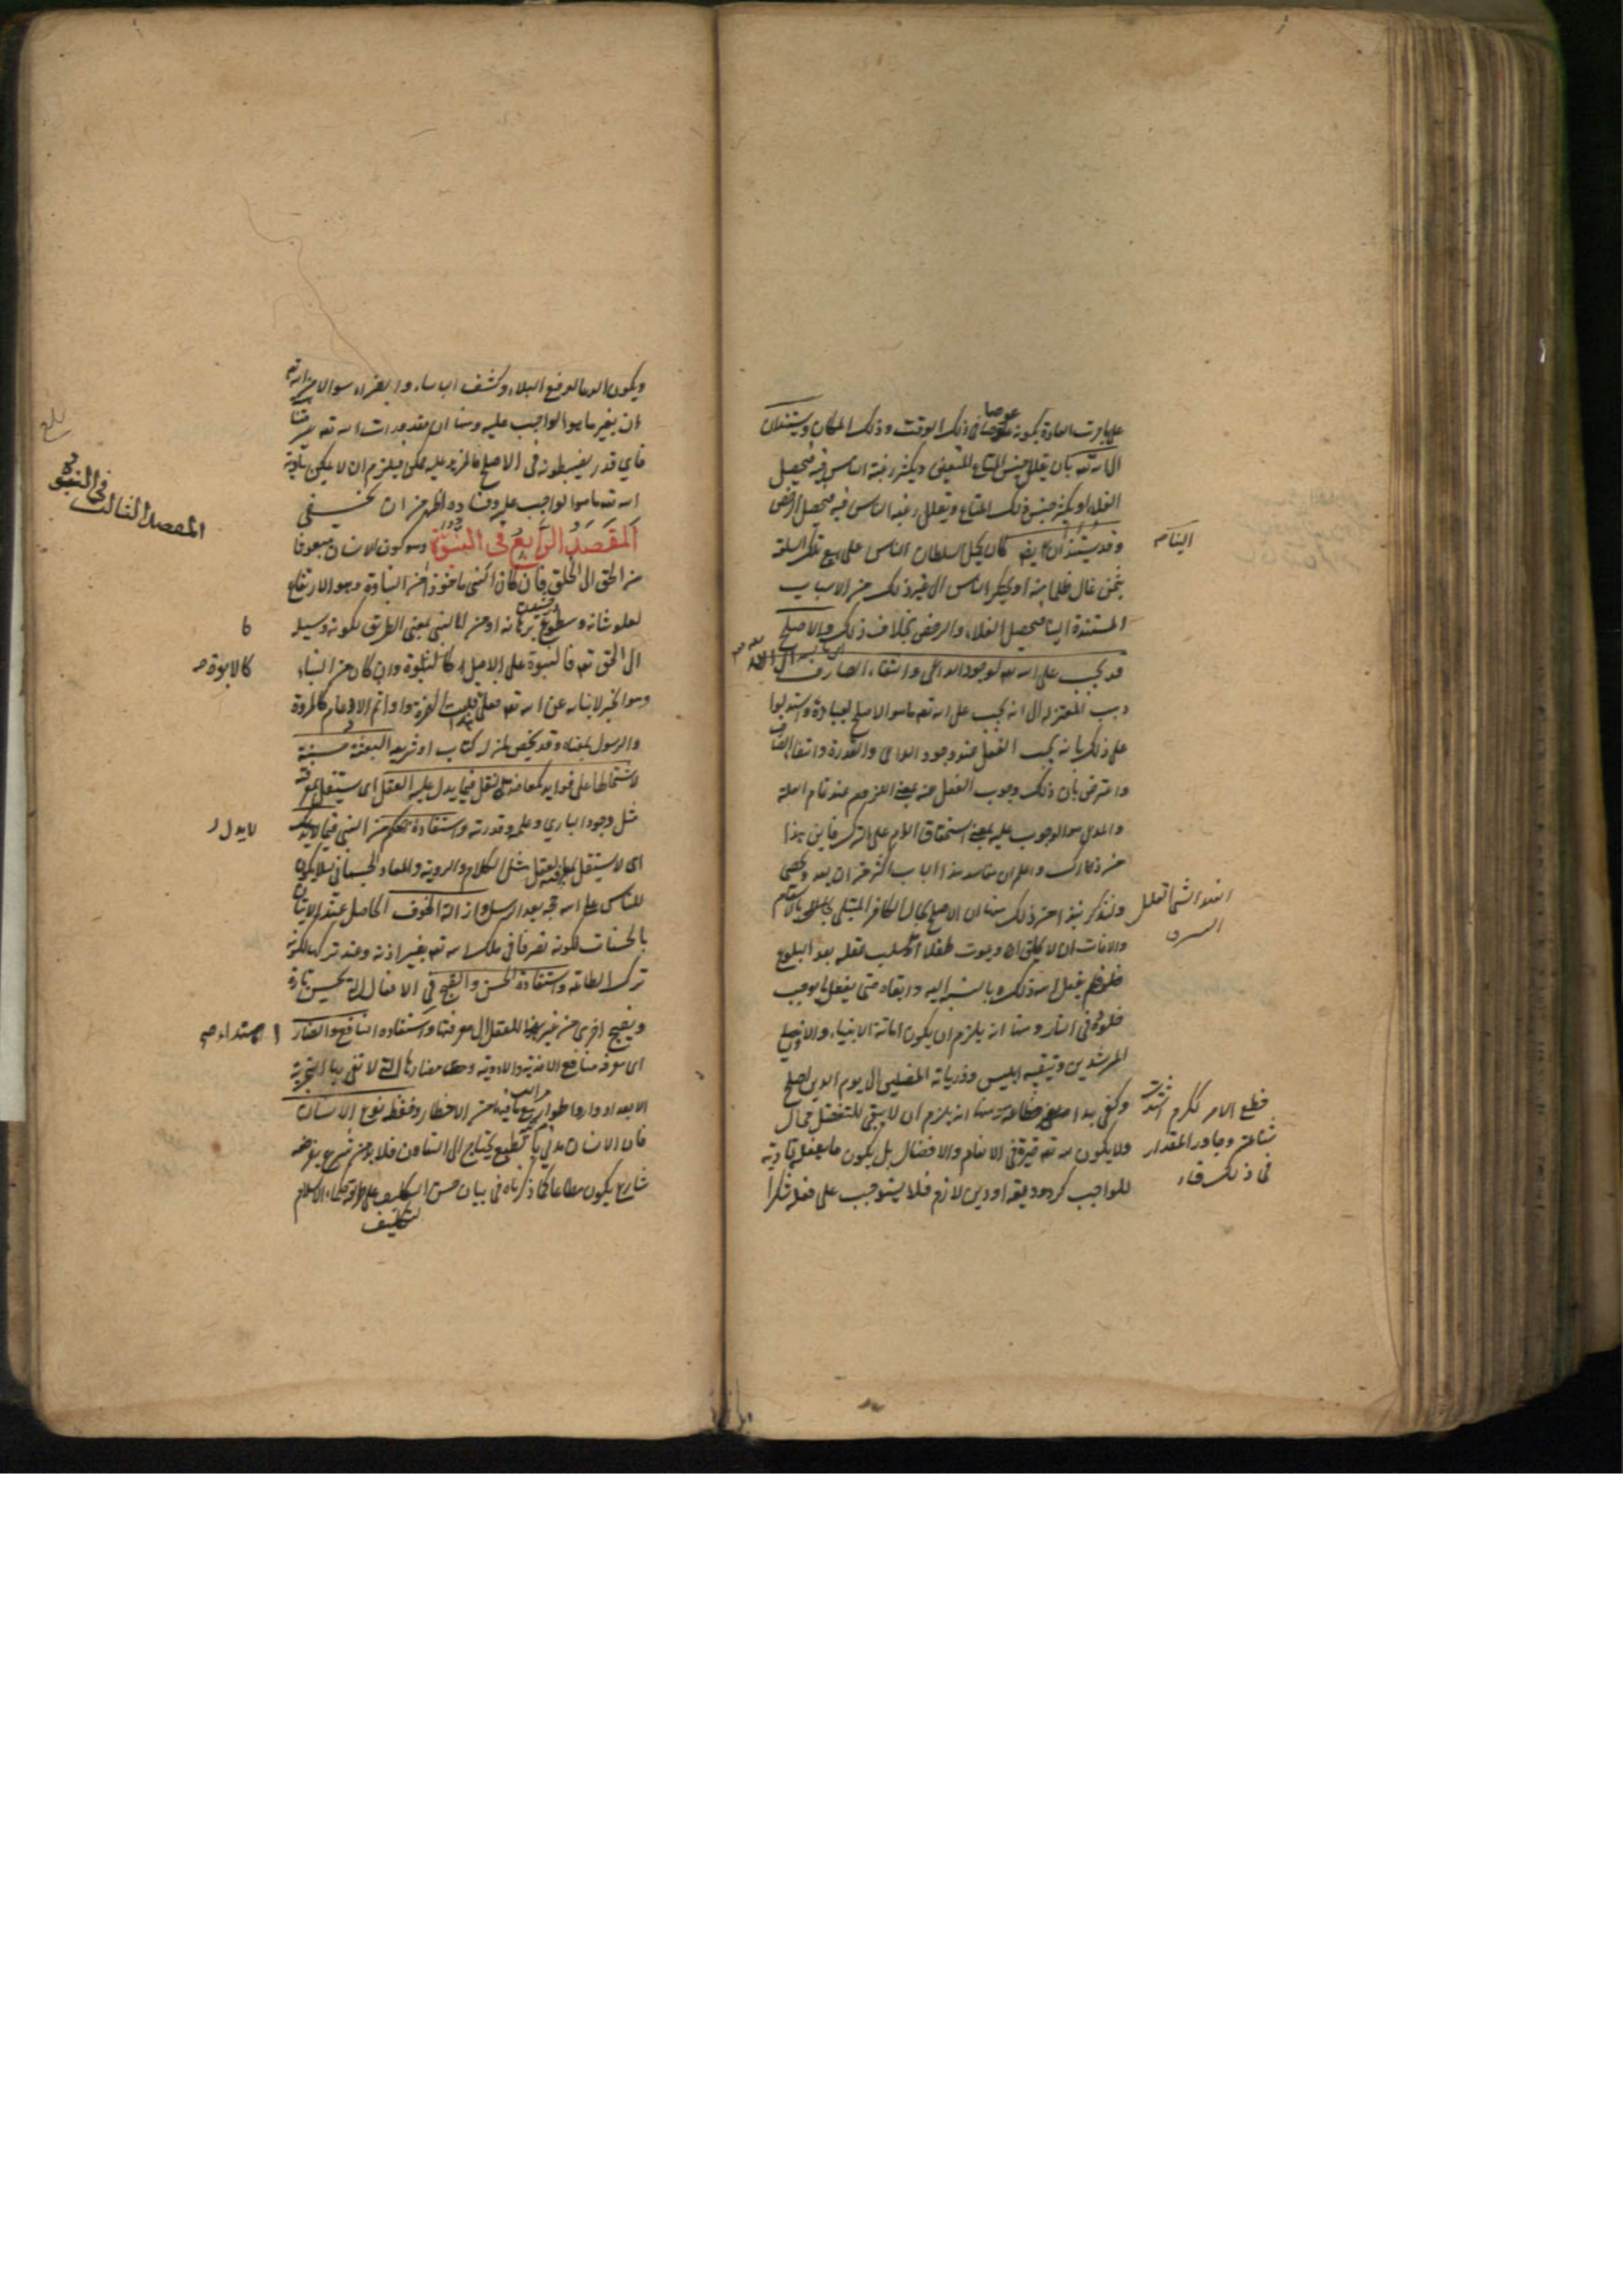 على ما جرت العادة بكونه عوضا في ذلك الوقت وذلك المكان ويستندان
الى الله تعه بان يقلل جنس المتاع المعين ويكثر رغبة الناس فيه فيحصل
الغلاء او يكثر جنس ذلك المتاع ويقلل رغبة الناس فيه فيحصل الرخص
وقد يستندان الينا كان يحمل السلطان الناس على بيع تلك السلعة
بثمن غال ظلما منه او يحتكر الناس الى غير ذلك من الاسباب
المستندة الينا فيحصل الغلاء والرخص بخلاف ذلك والاصلح
قد يجب على الله تعه لوجود الداعي وانتفاء الصارف
ذهب المعتزلة الى انه يجب على الله تعه ما هو الاصلح لعباده واستدلوا
على ذلك بانه يجب الفعل عند وجود الداعي والقدرة وانتفاء الصارف
واعترض بان ذلك وجوب الفعل عنه بمعنى اللزوم عند تمام العلة
والمدعى هو الوجوب عليه بمعنى استحقاق الذم على الترك فاين هذا
من ذاك واعلم ان مفاسد هذا الباب اكثر من ان يعد ويحصى
ولنذكر نبذا من ذلك منها ان الاصلح بحال الكافر المبتلى بالاسقام
والافات ان لا يخلق او يموت طفلا او يسلب عقله بعد البلوغ
فلم يفعل الله ذلك بالنسبة اليه وابقاه حتى يفعل ما يوجب
خلوده في النار ومنها انه يلزم ان يكون اماتة الانبياء والاولياء
المرشدين وتبقية ابليس وذرياته المضلين الى يوم الدين اصلح
وكفى بهذا فظاعة ومنها انه يلزم ان لا يبقى للتفضل مجال
ولا يكون لله تعه خيرة في الانعام والافضال بل يكون ما يفعله تادية
للواجب كرد وديعة او دين لازم فلا يستوجب على فعله شكرا
ويكون الدعاء لدفع البلاء وكشف الباساء والضراء سوالا من الله تعه
ان يغير ما هو الواجب عليه ومنها ان مقدورات الله تعه غير متناهية
فاي قدر يضبطونه في الاصلح فالمزيد عليه ممكن فيلزم ان لا يمكن تادية
الله تعه ما هو الواجب عليه وفساده اظهر من ان يخفى
المقصد الرابع في النبوة وهو كون الانسان مبعوثا
من الحق الى الخلق فان كان النبي ماخوذا من النباوة وهو الارتفاع
لعلو شانه وسطوع برهانه او من النبي بمعنى الطريق لكونه وسيلة
الى الحق تعه فالنبوة على الاصل كالابوة وان كان من النباء
وهو الخبر لانبائه عن الله تعه فعلى قلب الهمزة واوا ثم الادغام كالمروة
والرسول بمعناه وقد يخص بمن له كتاب او شريعة البعثة حسنة
لاشتمالها على فوايد كمعاضدة العقل فيما يدل عليه العقل اى يستقل بمعرفته
مثل وجود الباري وعلمه وقدرته واستفادة الحكم من النبي فيما لا يدل
اى لا يستقل بمعرفته العقل مثل الكلام والروية والمعاد الجسماني ليلا يكون
للناس على الله حجة بعد الرسل وازالة الخوف الحاصل عند الاتيان
بالحسنات لكونه تصرفا في ملك الله تعه بغير اذنه وعند تركها لكونه
ترك الطاعة واستفادة الحسن والقبح في الافعال التي تحسن تارة
وتقبح اخرى من غير اهتداء للعقل الى معرفتها واستفادة النافع والضار
اى معرفة منافع الاغذية والادوية ومضارها التي لا تفي بها التجربة
الا بعد ادوار واطوار مع ما فيها من الاخطار وحفظ نوع الانسان
فان الانسان مدني بالطبع يحتاج الى التعاون فلا بد من شرع يفرضه
شارع يكون مطاعا كما ذكرناه في بيان حسن التكليف على طريقة حكماء الاسلام
لتكليف
المقصد الثالث في النبوة
كالابوة
لا يدل
اهتداء